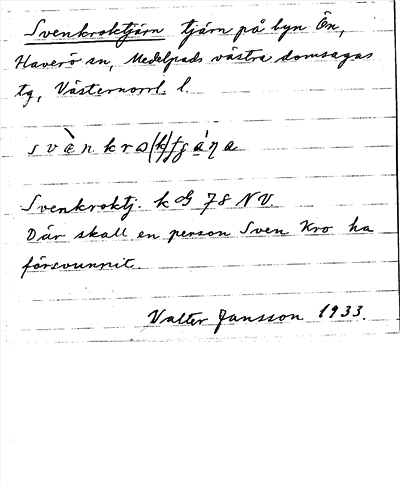 Svenkroktjärn tjärn på byn Ön,
Haverö sn, Medelpads västra domsagas
tg, Västernorrl. l.
svènkro(k)
Svenkroktj. k G 78 NV.
Där skall en person Sven Kro ha
försvunnit.
Valter Jansson 1933.